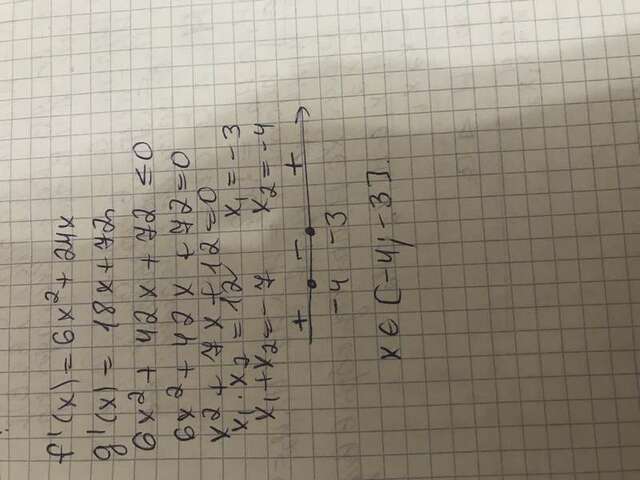 f'(x) = 6x² + 24x
g'(x) = 18x + 72
6x² + 42x + 72 ≤ 0
6x² + 42x + 72 = 0
x² + 7x + 12 = 0
x₁ · x₂ = 12 x₁ = -3
x₁ + x₂ = -7 x₂ = -4
+ - +
-4 -3
x ∈ [-4; -3].